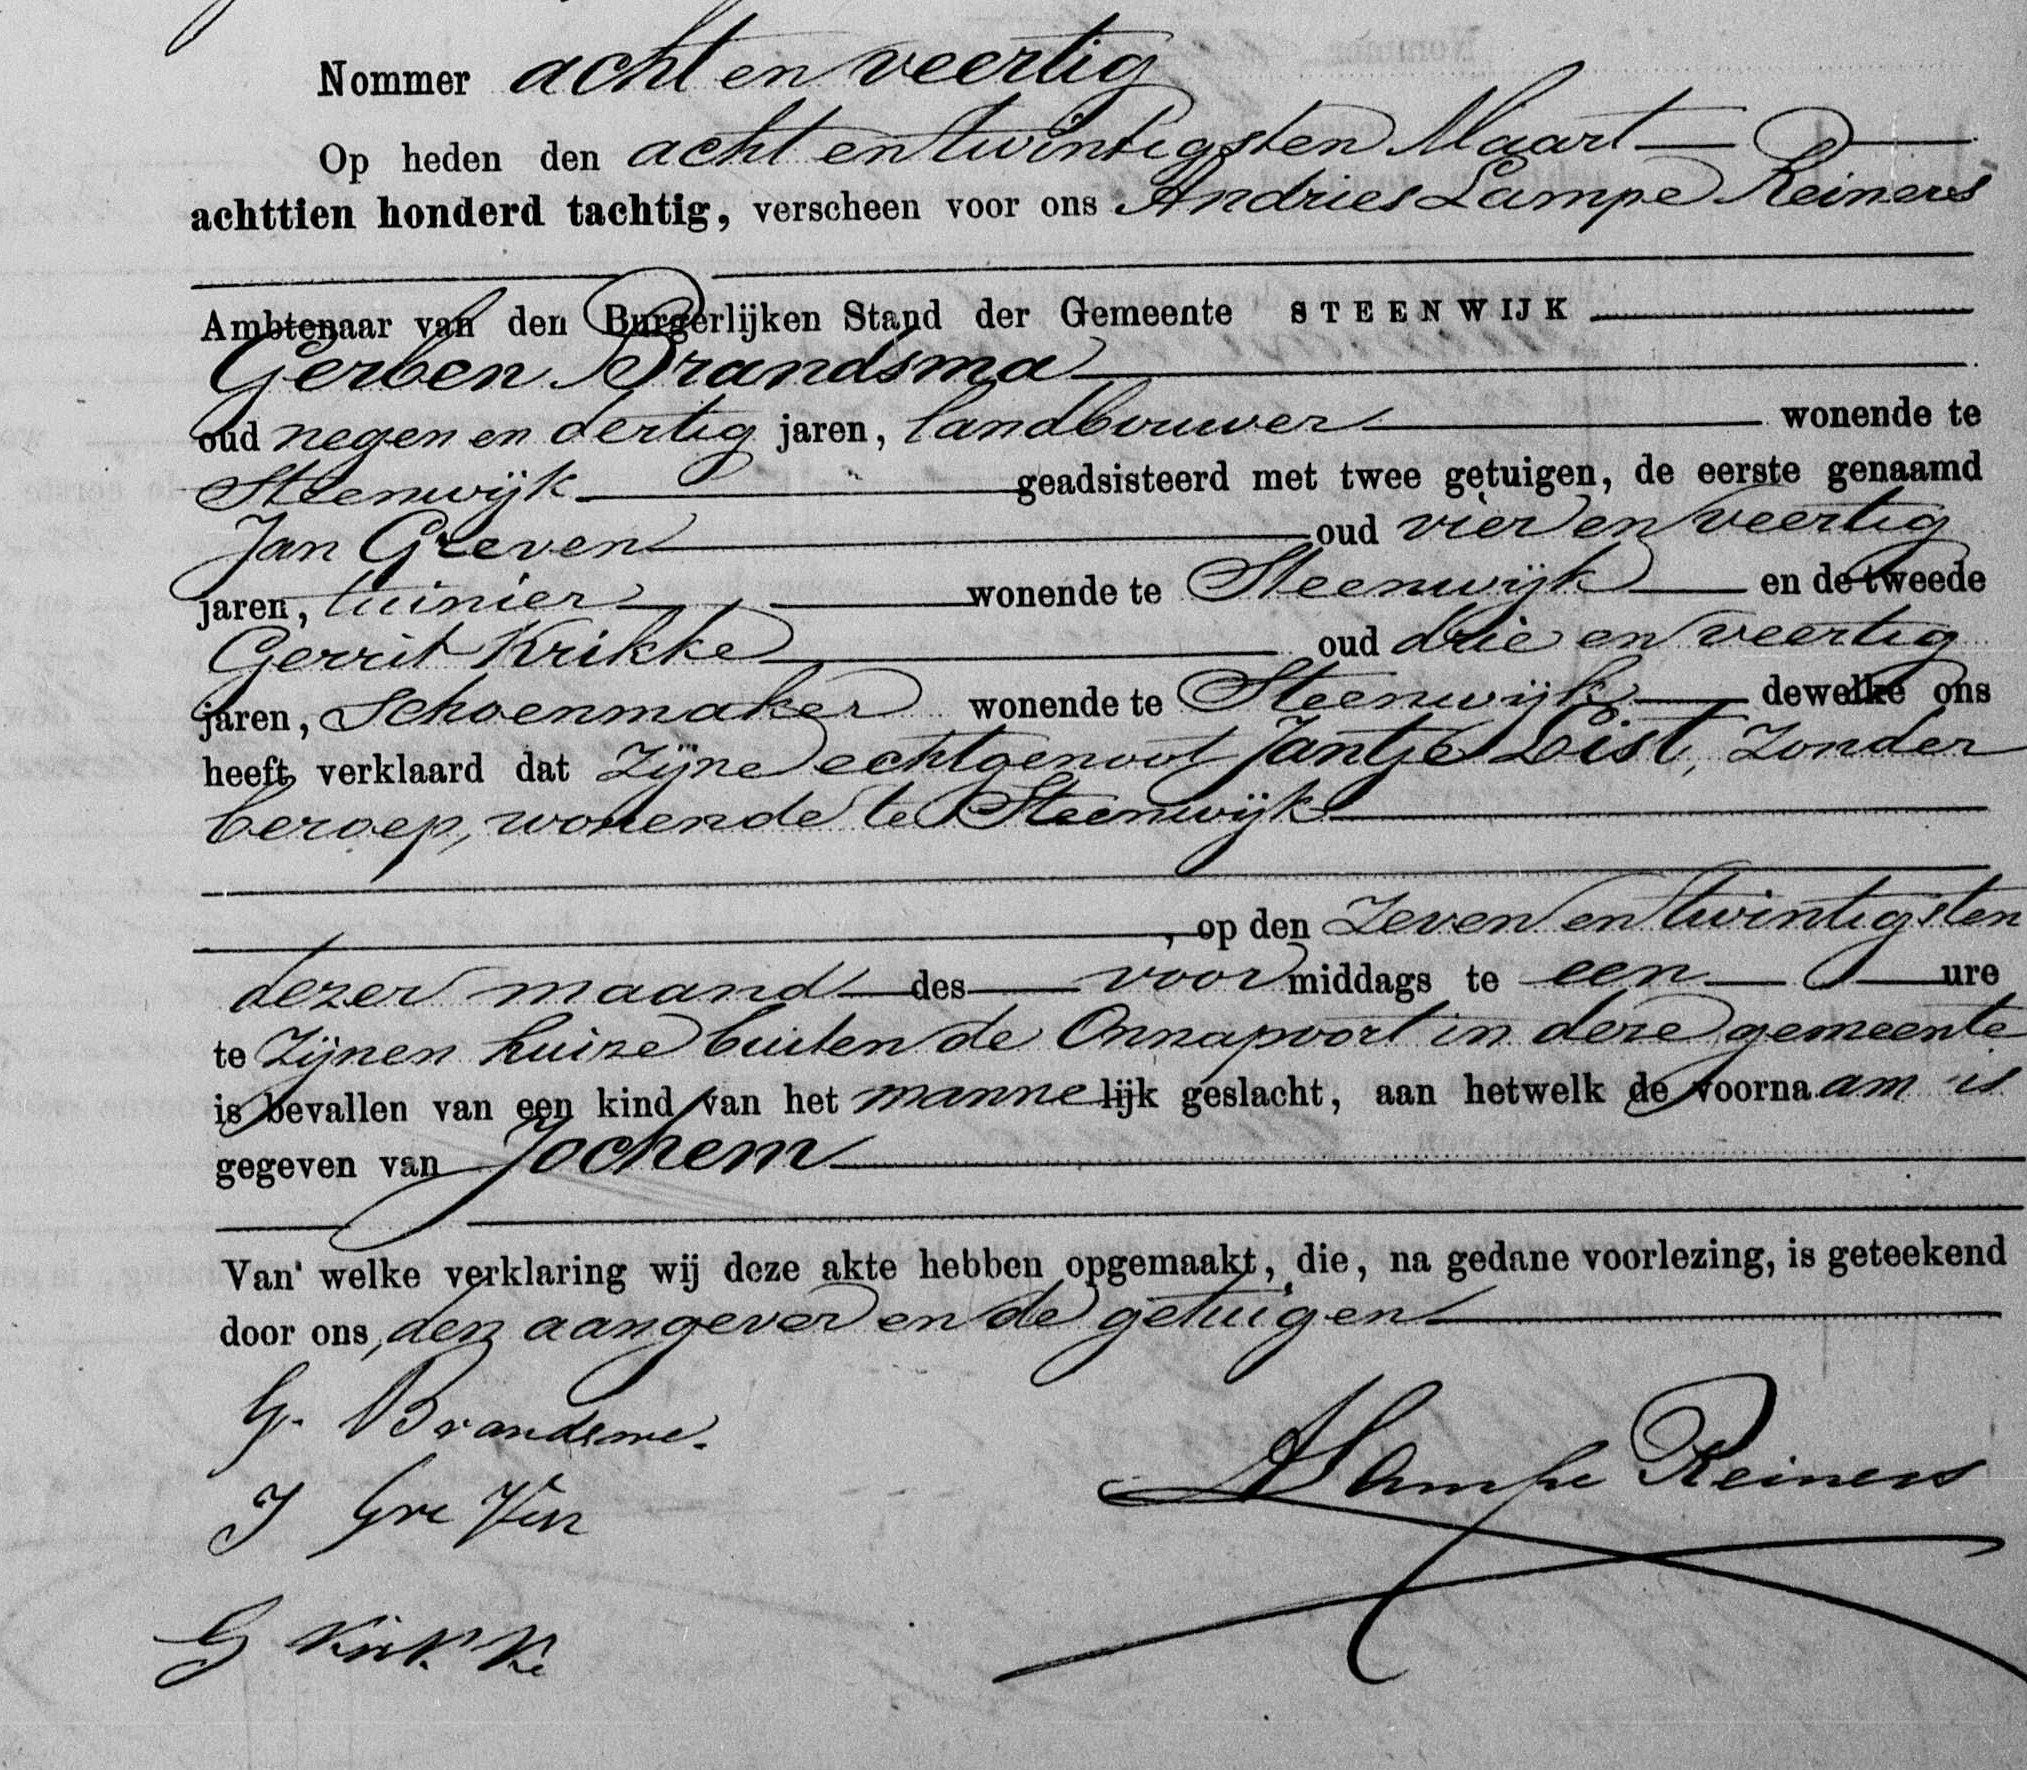 Nommer acht en veertig
Op heden den acht en twintigsten Maart
achttien honderd tachtig, verscheen voor ons Andries Lampe Reiners
Ambtenaar van den Burgerlijken Stand der Gemeente STEENWIJK
Gerben Brandsma
oud negen en dertig jaren, landbouwer wonende te
Steenwijk geadsisteerd met twee getuigen, de eerste genaamd
Jan Greven oud vier en veertig
jaren, tuinier wonende te Steenwijk en de tweede
Gerrit Krikke oud drie en veertig
jaren, Schoenmaker wonende te Steenwijk dewelke ons
heeft verklaard dat Zijne echtgenoot Jantje List, Zonder
beroep, wonende te Steenwijk
, op den Zeven en twintigsten
dezer maand des voor middags te een ure
te Zijnen huize buiten de Onnapoort in deze gemeente
is bevallen van een kind van het mannelijk geslacht, aan hetwelk de voornaam is
gegeven van Jochem
Van welke verklaring wij deze akte hebben opgemaakt, die, na gedane voorlezing, is geteekend
door ons, den aangever en de getuigen
G. Brandsma.
J Greven
G Krikke
ALampe Reiners